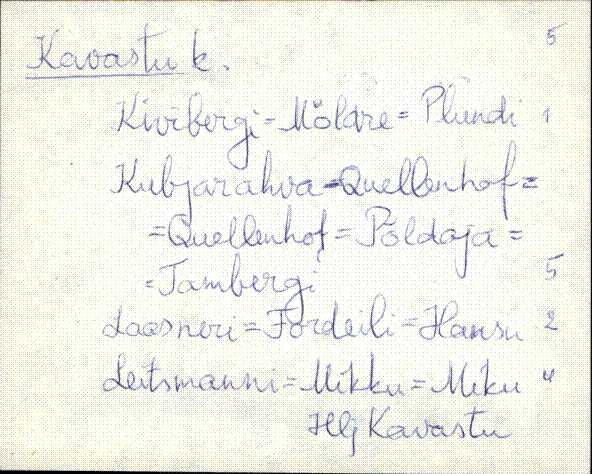 5
Kavastu k.
Kivibergi = Möldre = Plundi 1
Kubjarahva = Quellenhof =
= Quellenhof = Põldaja =
= Tambergi 5
Laasneri = Fordeili = Hansu 2
Leitsmanni = Mikku = Miku 4
Hlj Kavastu